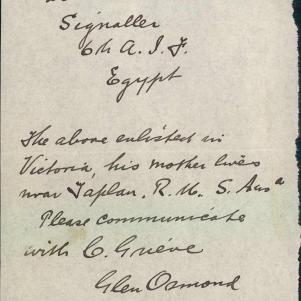 Signaller
6th A. I. F.
Egypt
The above enlisted in
Victoria, his mother lives
near Taplan, R. M. S. Ausᵃ
Please communicate
with C. Grieve
Glen Osmond